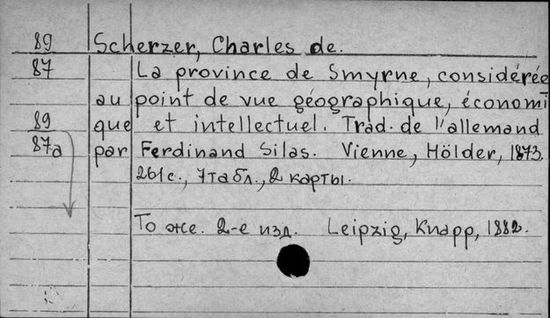 89 Scherzer, Charles de.
87 La province de Smyrne, considérée
au point de vue géographique, économi
89 que et intellectuel. Trad. de l'allemand
87a par Ferdinand Silas. Vienne, Hölder, 1873.
261с., 7табл., 2 карты.
То же. 2-е изд. Leipzig, Knapp, 1882.